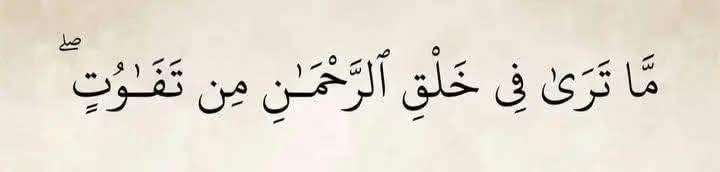 مَّا تَرَىٰ فِى خَلْقِ ٱلرَّحْمَـٰنِ مِن تَفَـٰوُتٍۢ ۖ